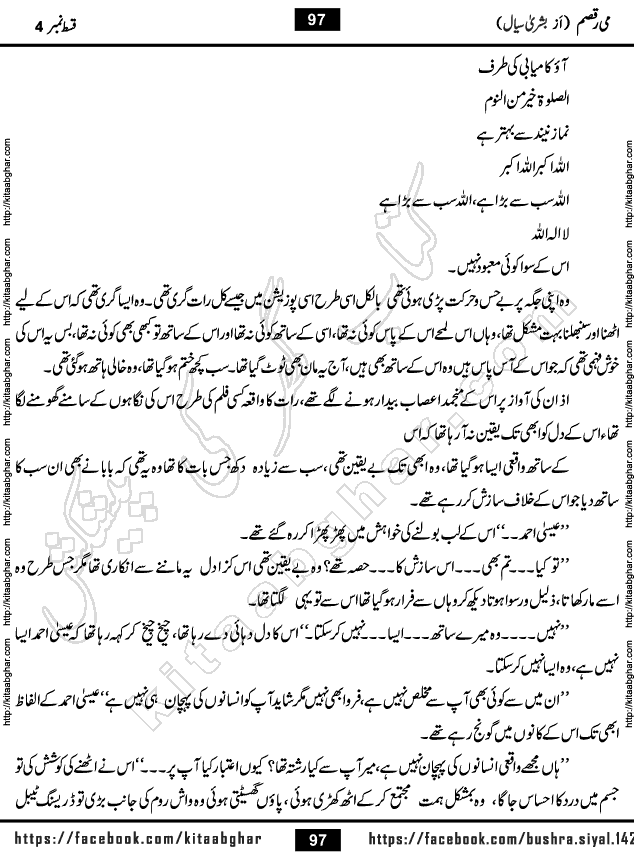 می رقصم (از بشریٰ سیال)
97
قسط نمبر 4
آؤ کامیابی کی طرف
الصلوۃ خیر من النوم
نماز نیند سے بہتر ہے
اللہ اکبر اللہ اکبر
اللہ سب سے بڑا ہے، اللہ سب سے بڑا ہے
لا الہ اللہ
اس کے سوا کوئی معبود نہیں۔
وہ اپنی جگہ پر بے حس و حرکت پڑی ہوئی تھی بالکل اسی طرح اسی پوزیشن میں جیسے کل رات گری تھی۔ وہ ایسا گری تھی کہ اس کے لیے
اٹھنا اور سنبھلنا بہت مشکل تھا، وہاں اس لمحے اس کے پاس کوئی نہ تھا، اسی کے ساتھ کوئی نہ تھا اور اس کے ساتھ تو کبھی بھی کوئی نہ تھا، بس یہ اس کی
خوش فہمی تھی کہ جو اس کے آس پاس ہیں وہ اس کے ساتھ بھی ہیں، آج یہ مان بھی ٹوٹ گیا تھا۔ سب کچھ ختم ہو گیا تھا، وہ خالی ہاتھ ہو گئی تھی۔
اذان کی آواز پر اس کے منجمد اعصاب بیدار ہونے لگے تھے، رات کا واقعہ کسی فلم کی طرح اس کی نگاہوں کے سامنے گھومنے لگا
تھا، اس کے دل کو ابھی تک یقین نہ آ رہا تھا کہ اس
کے ساتھ واقعی ایسا ہو گیا تھا، وہ ابھی تک بے یقین تھی، سب سے زیادہ دکھ جس بات کا تھا وہ یہ تھی کہ بابا نے بھی ان سب کا
ساتھ دیا جو اس کے خلاف سازش کر رہے تھے۔
’’عیسیٰ احمد۔۔‘‘ اس کے لب بولنے کی خواہش میں پھڑپھڑا کر رہ گئے تھے۔
’’تو کیا۔۔۔ تم بھی۔۔۔ اس سازش کا۔۔۔ حصہ تھے؟ وہ بے یقین تھی اس کا دل یہ ماننے سے انکاری تھا مگر جس طرح وہ
اسے مار کھاتا، ذلیل و رسوا ہوتا دیکھ کر وہاں سے فرار ہو گیا تھا اس سے تو یہی لگتا تھا۔
’’نہیں۔۔۔۔ وہ میرے ساتھ۔۔۔ ایسا۔۔۔ نہیں کر سکتا۔‘‘ اس کا دل دہائی دے رہا تھا، چیخ چیخ کر کہہ رہا تھا کہ عیسیٰ احمد ایسا
نہیں ہے، وہ ایسا نہیں کر سکتا۔
’’ان میں سے کوئی بھی آپ سے مخلص نہیں ہے، فروا بھی نہیں مگر شاید آپ کو انسانوں کی پہچان ہی نہیں ہے‘‘ عیسیٰ احمد کے الفاظ
ابھی تک اس کے کانوں میں گونج رہے تھے۔
’’ہاں مجھے واقعی انسانوں کی پہچان نہیں ہے، میرا آپ سے کیا رشتہ تھا؟ کیوں اعتبار کیا آپ پر۔۔۔‘‘ اس نے اٹھنے کی کوشش کی تو
جسم میں درد کا احساس جاگا، وہ بمشکل ہمت مجتمع کر کے اٹھ کھڑی ہوئی، پاؤں گھسیٹتی ہوئی وہ واش روم کی جانب بڑی تو ڈریسنگ ٹیبل
https://facebook.com/kitaabghar
97
https://facebook.com/bushra.siyal.142
http://kitaabghar.com http://kitaabghar.com http://kitaabghar.com http://kitaabghar.com http://kitaabghar.com http://kitaabghar.com
http://kitaabghar.com http://kitaabghar.com http://kitaabghar.com http://kitaabghar.com http://kitaabghar.com http://kitaabghar.com
کتاب گھر کی پیشکش
kitaabghar.com